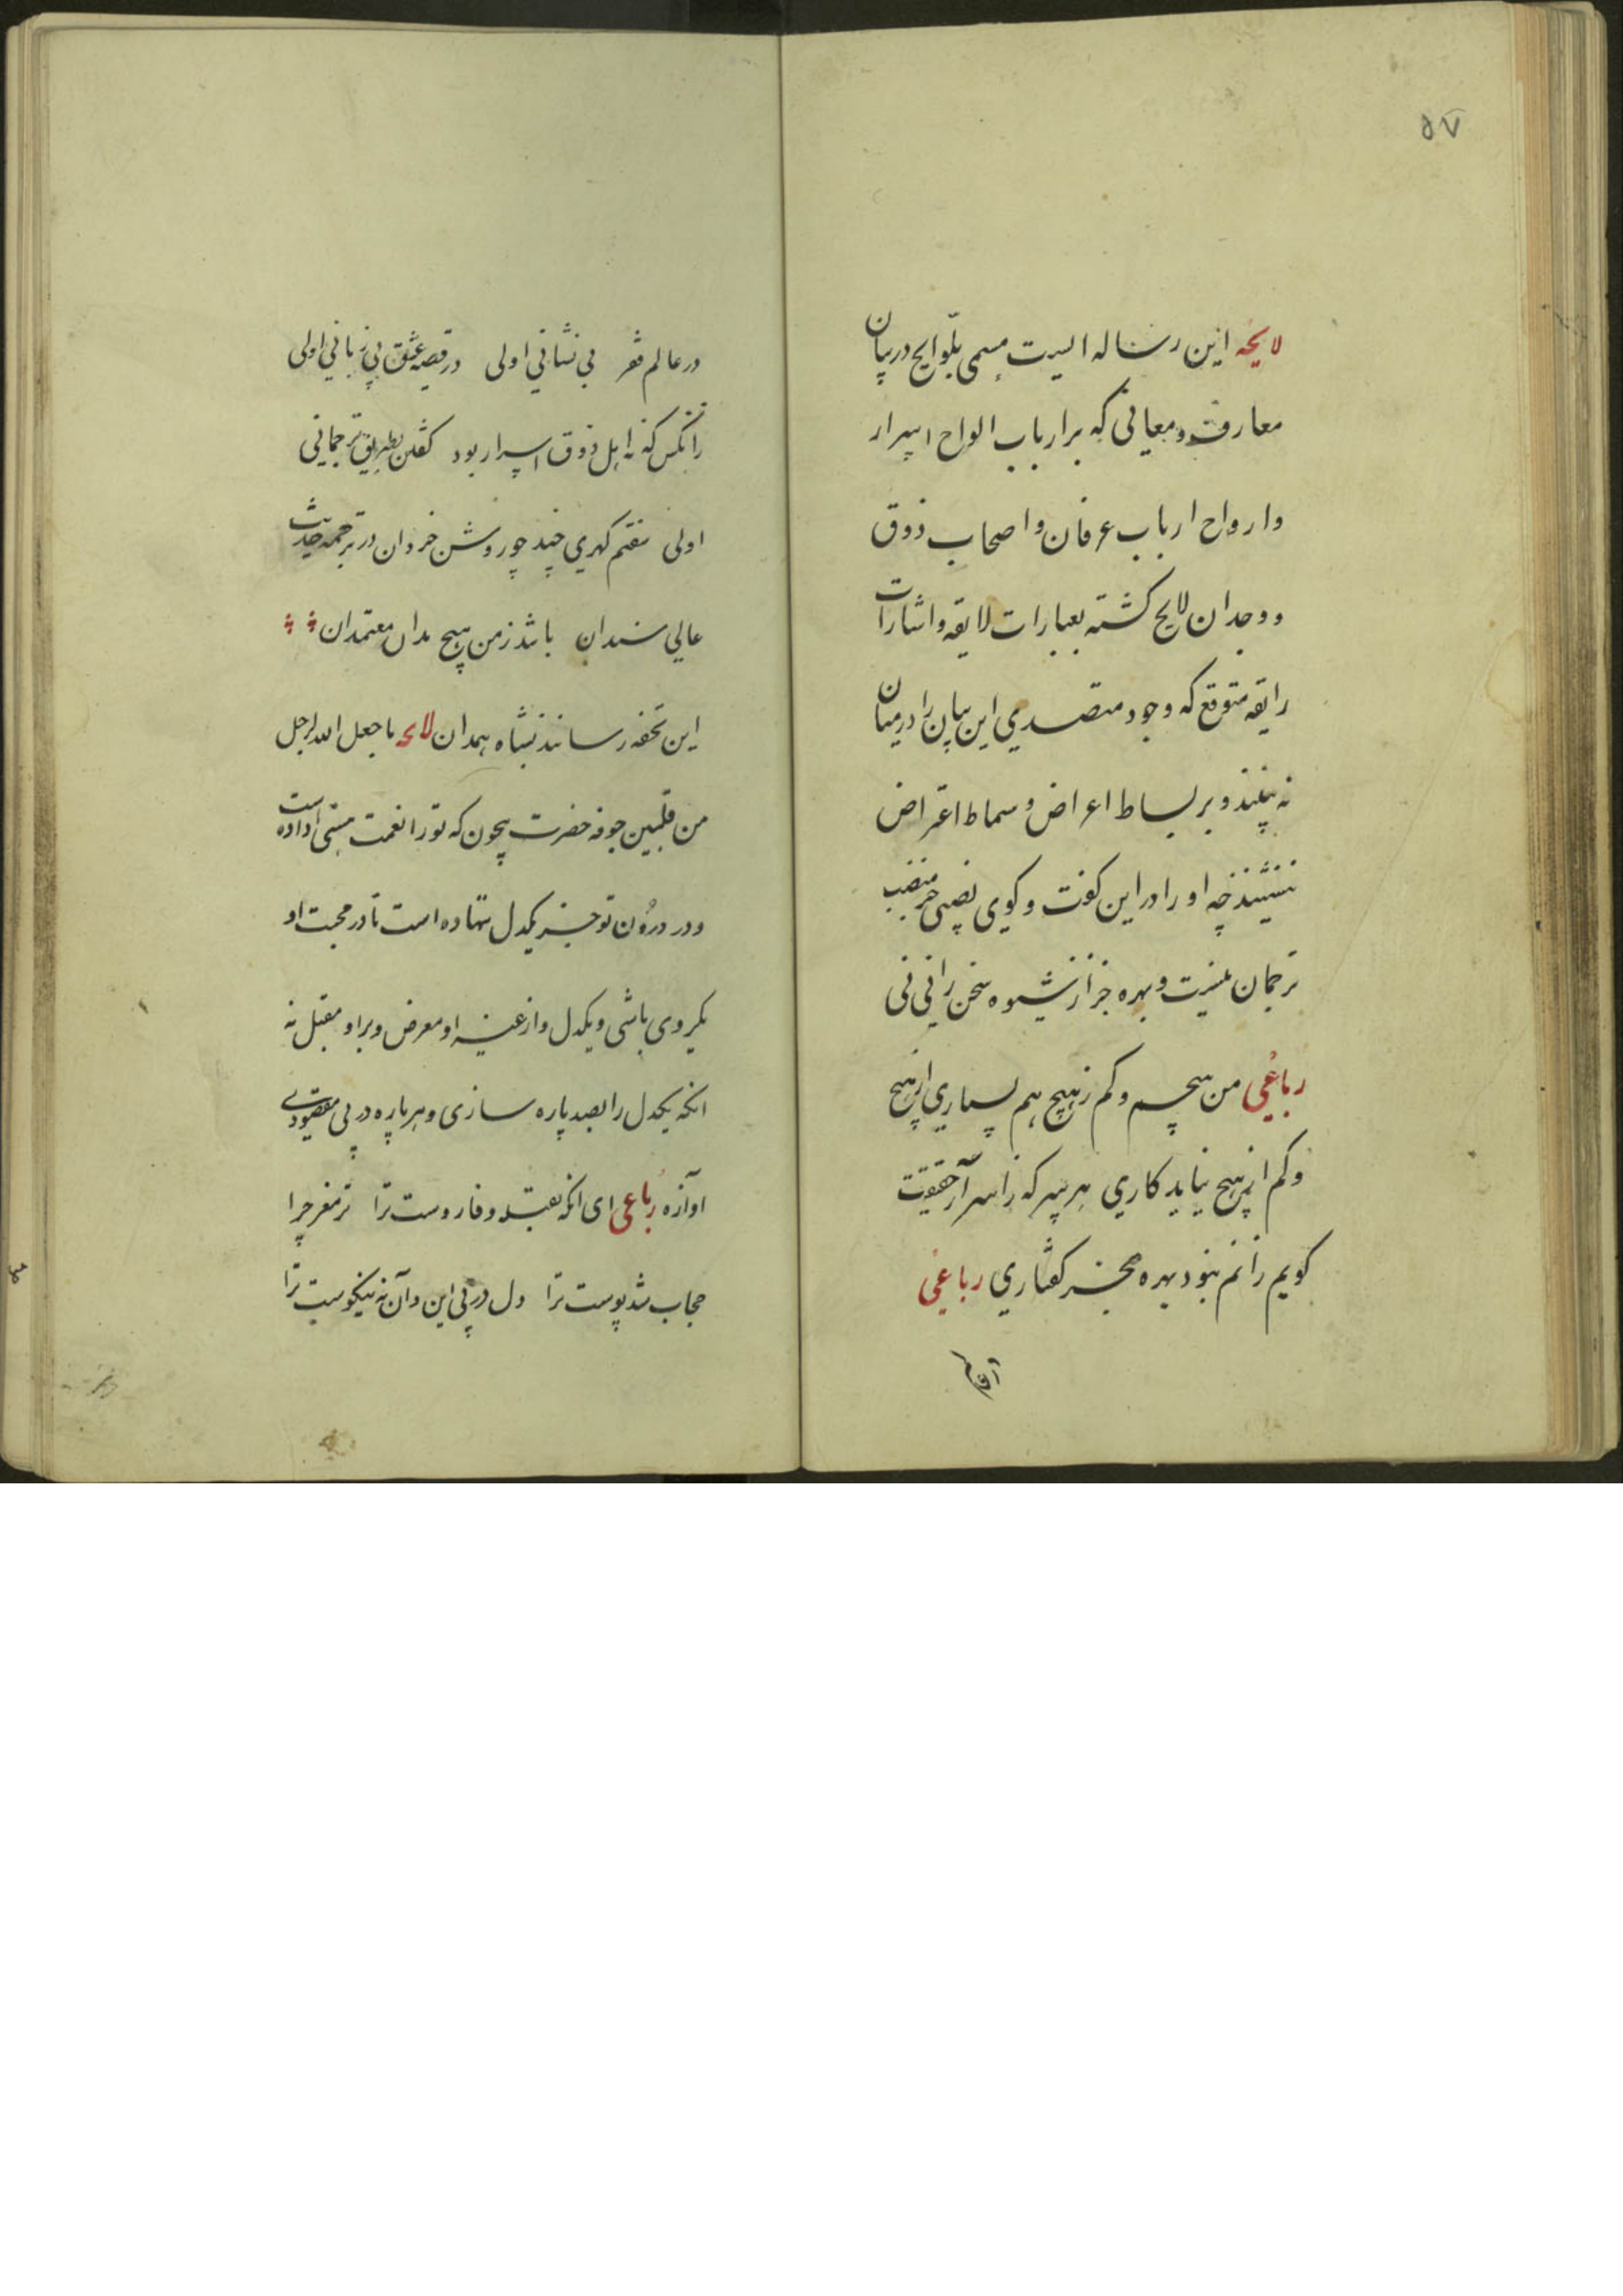 ۵۷
لایحه این رساله ایست مسمی بلوایح در بیان
معارف و معانی که بر ارباب الواح اسرار
و ارواح ارباب عرفان و اصحاب ذوق
و وجدان لایح کشته بعبارات لایقه و اشارات
رایقه متوقع که وجود متصدی این بیان را در میان
نه بینند و بر بساط اعراض و سماط اعتراض
ننشینند چه او را در این کفت و کوی نصیبی جز منصب
ترجمان نیست و بهره جز از شیوه سخن رانی نی
رباعی من هیچم و کم ز هیچ هم بسیاری از هیچ
و کم از هیچ نیاید کاری هر سر که ز اسرار حقیقت
کویم زانم نبود بهره بجز کفتاری رباعی
در عالم فقر بی نشانی اولی در قصه عشق بی زبانی اولی
زانکس که نه اهل ذوق اسرار بود کفتن بطریق ترجمانی
اولی سفتم کهری چند چو روشن خردان در ترجمه حدیث
عالی سندان باشد ز من هیچ مدان معتمدان
این تحفه رسانند بشاه همدان لایحه ما جعل الله لرجل
من قلبین جوفه حضرت بیچون که تو را نعمت هستی داده است
و در درون تو جز یکدل ننهاده است تا در محبت او
یکروی باشی و یکدل و از غیر او معرض و بر او مقبل نه
انکه یکدل را بصد پاره سازی و هر پاره در پی مقصودی
اوآزه رباعی ای انکه بقبله وفا روست ترا بر مغز چرا
حجاب شد پوست ترا دل در پی این و آن نه نیکوست ترا